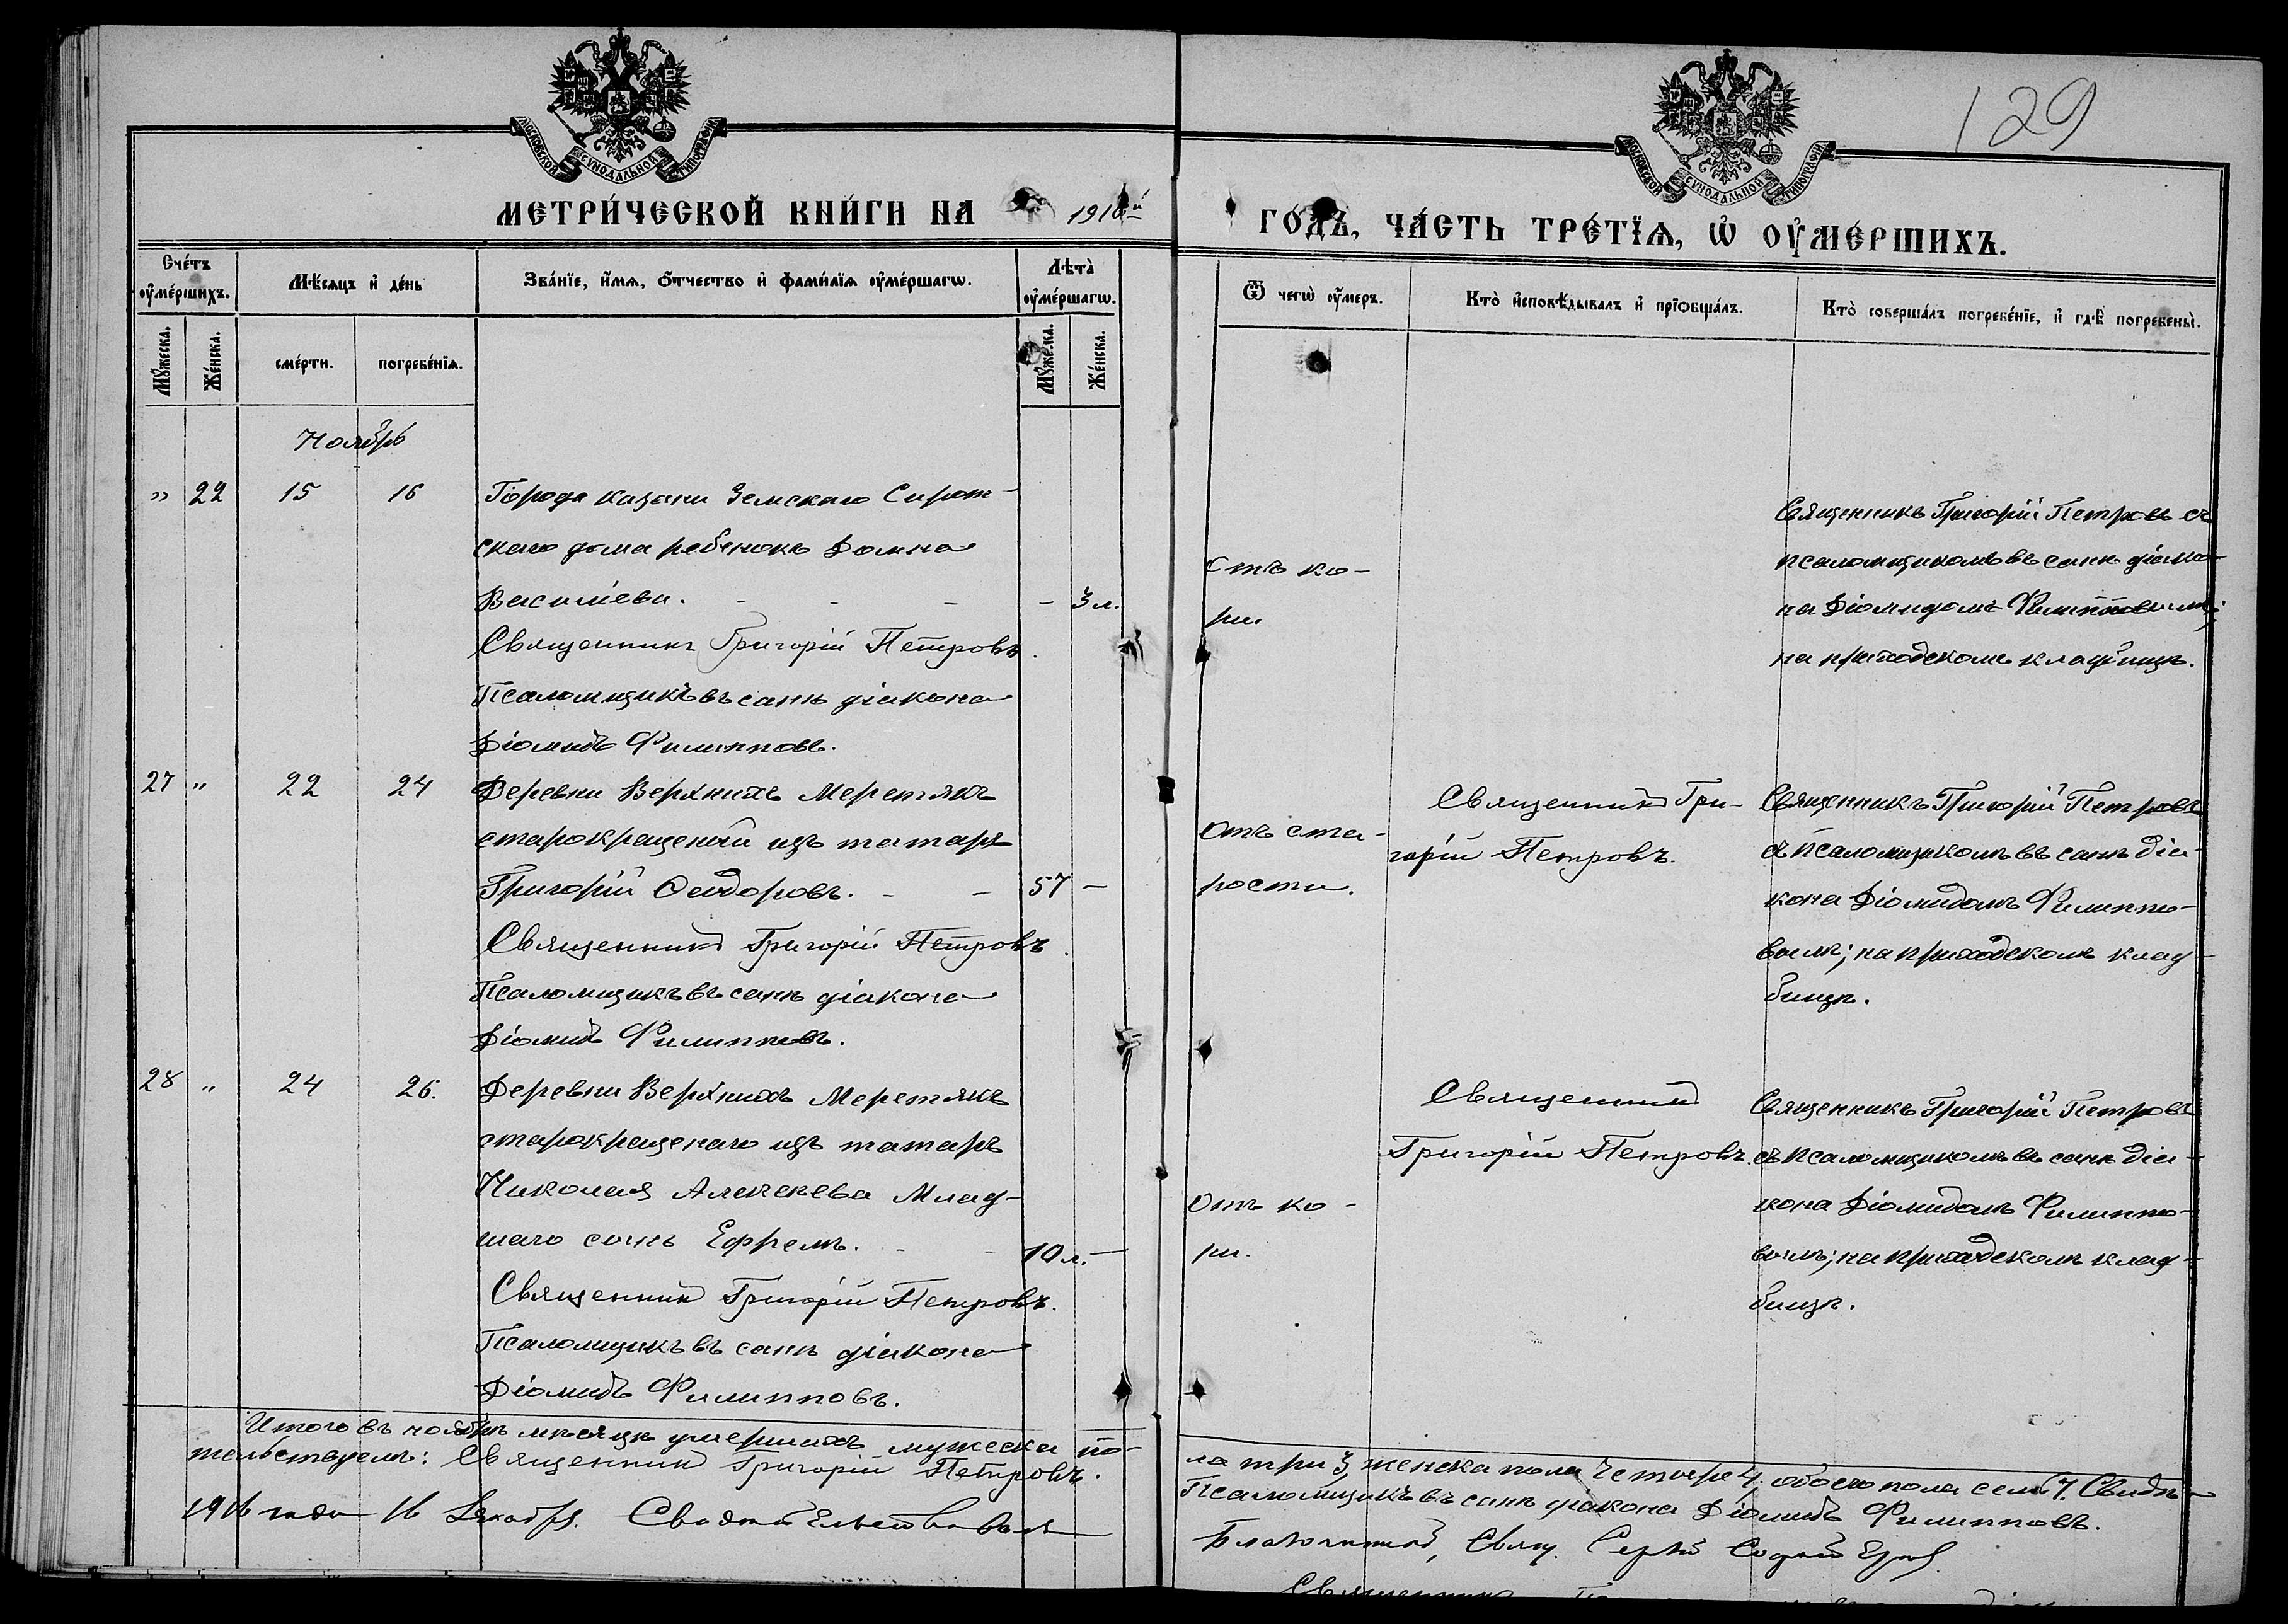 129
МОСКОВСКОЙ СѴНОДАЛЬНОЙ ТИПОГРАФІИ
МОСКОВСКОЙ СѴНОДАЛЬНОЙ ТИПОГРАФІИ
МЕТРИ́ЧЕСКОЙ КНИ́ГИ НА 1916й ГО́ДЪ, ЧА́СТЬ ТРЕ́ТЇѦ, Ѡ҆ ОУ҆МЕ́РШИХЪ.
Сче́тъ оу҆ме́ршихъ.
Мѣ́сяцъ и҆ де́нь
Зва́нїе, и҆́мѧ, ѻ҆́тчество и҆ фами́лїѧ оу҆ме́ршагѡ.
Лѣ́та оу҆ме́ршагѡ.
Ѿ чегѡ̀ оу҆́меръ.
Кто̀ и҆сповѣ́дывалъ и҆ прїѡбща́лъ.
Кто̀ соверша́лъ погребе́нїе, и҆ гдѣ̀ погребены̀.
Мꙋ́жеска. Же́нска.
сме́рти. погребе́нїѧ.
Мꙋ́жеска. Же́нска.
Ноябрь
" 22 15 16 Города Казани Земскаго Сирот-
скаго дома ребенокъ Домна
Василіева. - - - - 3 л.
Священникъ Григорій Петровъ.
Псаломщикъ въ санѣ діакона
Діомидъ Филипповъ.
Отъ ко-
ри.
Священникъ Григорій Петровъ съ
псаломщикомъ въ санѣ діако-
на Діомидомъ Филипповымъ;
на приходскомъ кладбищѣ.
27 " 22 24 Деревни Верхнихъ Меретякъ
старокрещеный изъ татаръ
Григорій Сидоровъ. - - 57 -
Священникъ Григорій Петровъ.
Псаломщикъ въ санѣ діакона
Діомидъ Филипповъ.
Отъ ста-
рости.
Священникъ Гри-
горій Петровъ.
Священникъ Григорій Петровъ
съ псаломщикомъ въ санѣ діа-
кона Діомидомъ Филиппо-
вымъ; на приходскомъ клад-
бищѣ.
28 " 24 26. Деревни Верхнихъ Меретякъ
старокрещенаго изъ татаръ
Николая Алексѣева Млад-
шаго сынъ Ефремъ. - - 10 л. -
Священникъ Григорій Петровъ.
Псаломщикъ въ санѣ діакона
Діомидъ Филипповъ.
Отъ ко-
ри.
Священникъ
Григорій Петровъ.
Священникъ Григорій Петровъ
съ псаломщикомъ въ санѣ діа-
кона Діомидомъ Филиппо-
вымъ; на приходскомъ клад-
бищѣ.
Итого въ ноябрѣ мѣсяцѣ умершихъ мужеска по-
ла три 3, женска пола четыре 4, обоего пола семь 7. Свидѣ-
тельствуемъ: Священникъ Григорій Петровъ.
Псаломщикъ въ санѣ діакона Діомидъ Филипповъ.
1916 года 16 Декабря. Свидѣтельствовалъ
Благочинный, Свящ. Сергій
Священникъ